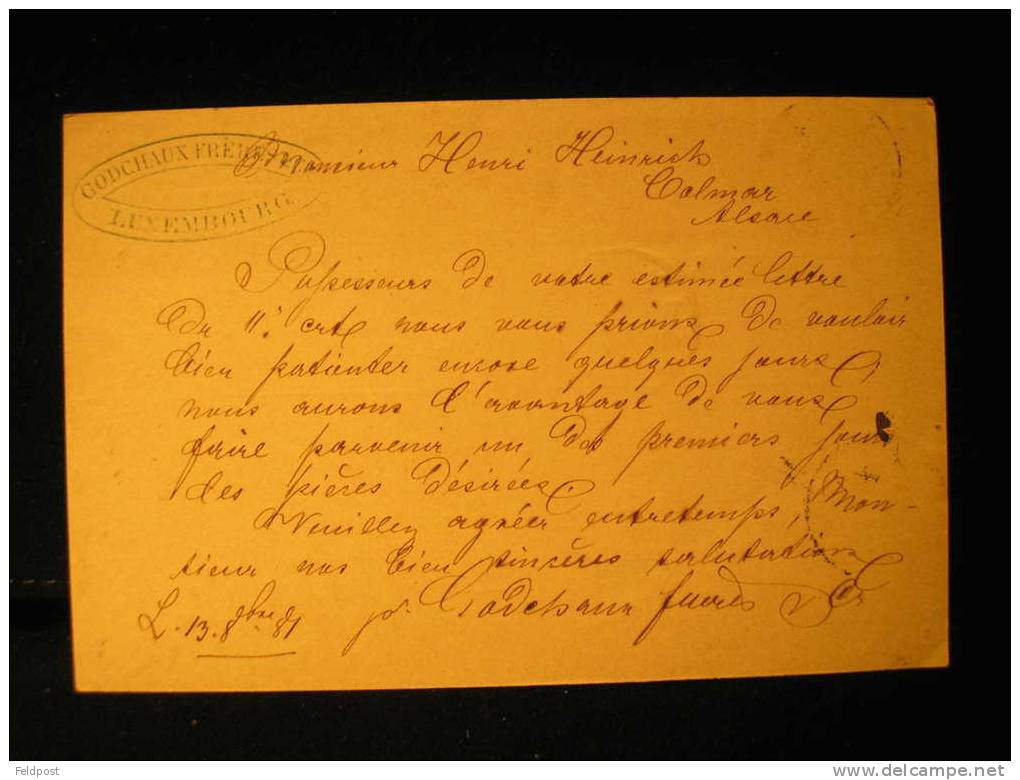 GODCHAUX FRÈRES
LUXEMBOURG
Monsieur Henri Heinrich
Colmar
Alsace
Possesseurs de votre estimée lettre
du 11. crt nous vous prions de vouloir
bien patienter encore quelques jours,
nous aurons l'avantage de vous
faire parvenir un des premiers jours
les pièces désirées.
Veuillez agréer entretemps, Mon-
sieur nos bien sincères salutations
L. 13. 8bre 81
pr. Godchaux frères & Cie
Feldpost
delcampe.net